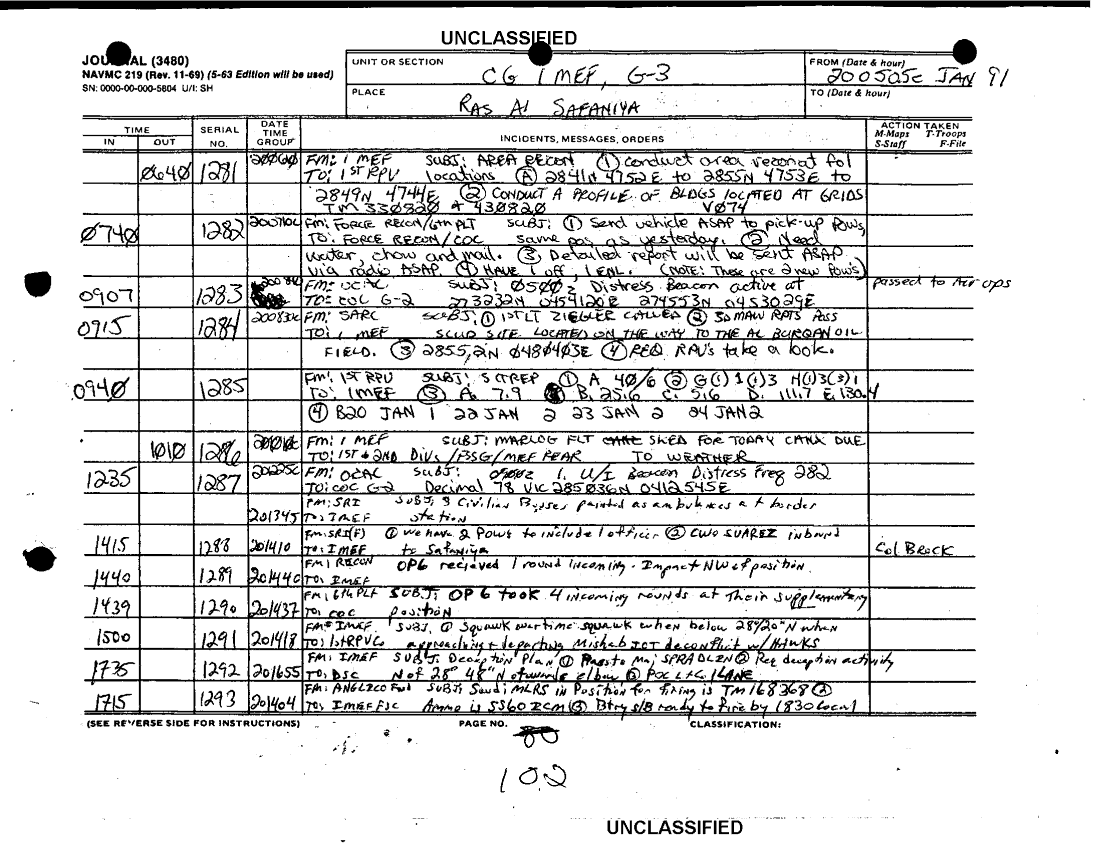 UNCLASSIFIED
JOURNAL (3480)
NAVMC 219 (Rev. 11-69) (5-63 Edition will be used)
SN: 0000-00-000-5804 U/I: SH
UNIT OR SECTION
CG I MEF, G-3
FROM (Date & hour)
200505C JAN 91
PLACE
RAS Al SAFANIYA
TO (Date & hour)
TIME
IN OUT
SERIAL NO.
DATE TIME GROUP
INCIDENTS, MESSAGES, ORDERS
ACTION TAKEN
M-Maps T-Troops
S-Staff F-File
0640 1281 FM: I MEF SUBJ: AREA RECON (1) conduct area recon at fol
TO: 1ST RPV locations (A) 2841N 4752E to 2855N 4753E to
2849N 4744E (2) CONDUCT A PROFILE OF BLDGS LOCATED AT GRIDS
TM 330820 & 430820 V074
0740 1282 200710C FM: FORCE RECON/6TH PLT SUBJ: (1) Send vehicle ASAP to pick-up POWs,
TO: FORCE RECON/COC same pos as yesterday. (2) Need
water, chow and mail. (3) Detailed report will be sent ASAP
via radio ASAP. (4) HAVE 1 off, 1 ENL. (NOTE: These are 2 new POWs)
0907 1283 FM: SUBJ: 0500z Distress Beacon active at passed to Air ops
TO: COC G-2 273232N 0459120E 274553N 0453029E
0915 1284 200830C FM: SARC SUBJ: (1) 1STLT ZIEGLER CALLED (2) 3D MAW RATS Pass
TO: I MEF SCUD SITE LOCATED ON THE WAY TO THE AL BURQAN OIL
FIELD. (3) 2855.2N 0480403E (4) REQ RPV's take a look.
0940 1285 FM: 1ST RPV SUBJ: SITREP (1) A 40/6 (2) G(1) 1(1)3 H(1)3(3)1
TO: I MEF (3) A. 7.9 B. 25.6 C. 5.6 D. 111.7 E. 130.4
(4) B20 JAN 1 22 JAN 2 23 JAN 2 24 JAN 2
1010 1286 FM: I MEF SUBJ: MARLOG FLT SKED FOR TODAY CANX DUE
TO: 1ST & 2ND DIVs/FSSG/MEF REAR TO WEATHER
1235 1287 201225C FM: OCAC SUBJ: 0900z 1. U/I Beacon Distress Freq 282
TO: COC G-2 Decimal 78 VIC 285036N 0412545E
201345 FM: SRI SUBJ: 8 Civilian Busses painted as ambulances at border
TO: I MEF station
1415 1288 201410 FM: SRI(F) (1) We have 2 POWs to include 1 officer (2) CWO SUAREZ inbound Col BROCK
TO: I MEF to Safaniya
1440 1289 201440 FM: RECON OP6 recieved 1 round incoming. Impact NW of position.
TO: IMEF
1439 1290 201437 FM: 6th PLT SUBJ: OP 6 took 4 incoming rounds at their supplementary
TO: COC position
1500 1291 201418 FM: IMEF SUBJ: (1) Squawk wartime squawk when below 28°20"N when
TO: 1stRPVCo approaching & departing Mishab IOT deconflict w/HAWKS
1735 1292 201655 FM: IMEF SUBJ: Deception Plan (1) Pass to Maj SPRADLIN (2) Req deception activity
TO: DSC N of 28° 48"N of elbow (3) POC LtC LANE
1715 1293 201404 FM: ANGLICO Fwd SUBJ: Saudi MLRS in Position for firing is TM168368 (2)
TO: IMEF FSC Ammo is SS60 ICM (3) Btry S/B ready to fire by 1830 local
(SEE REVERSE SIDE FOR INSTRUCTIONS) PAGE NO. 80 CLASSIFICATION:
102
UNCLASSIFIED